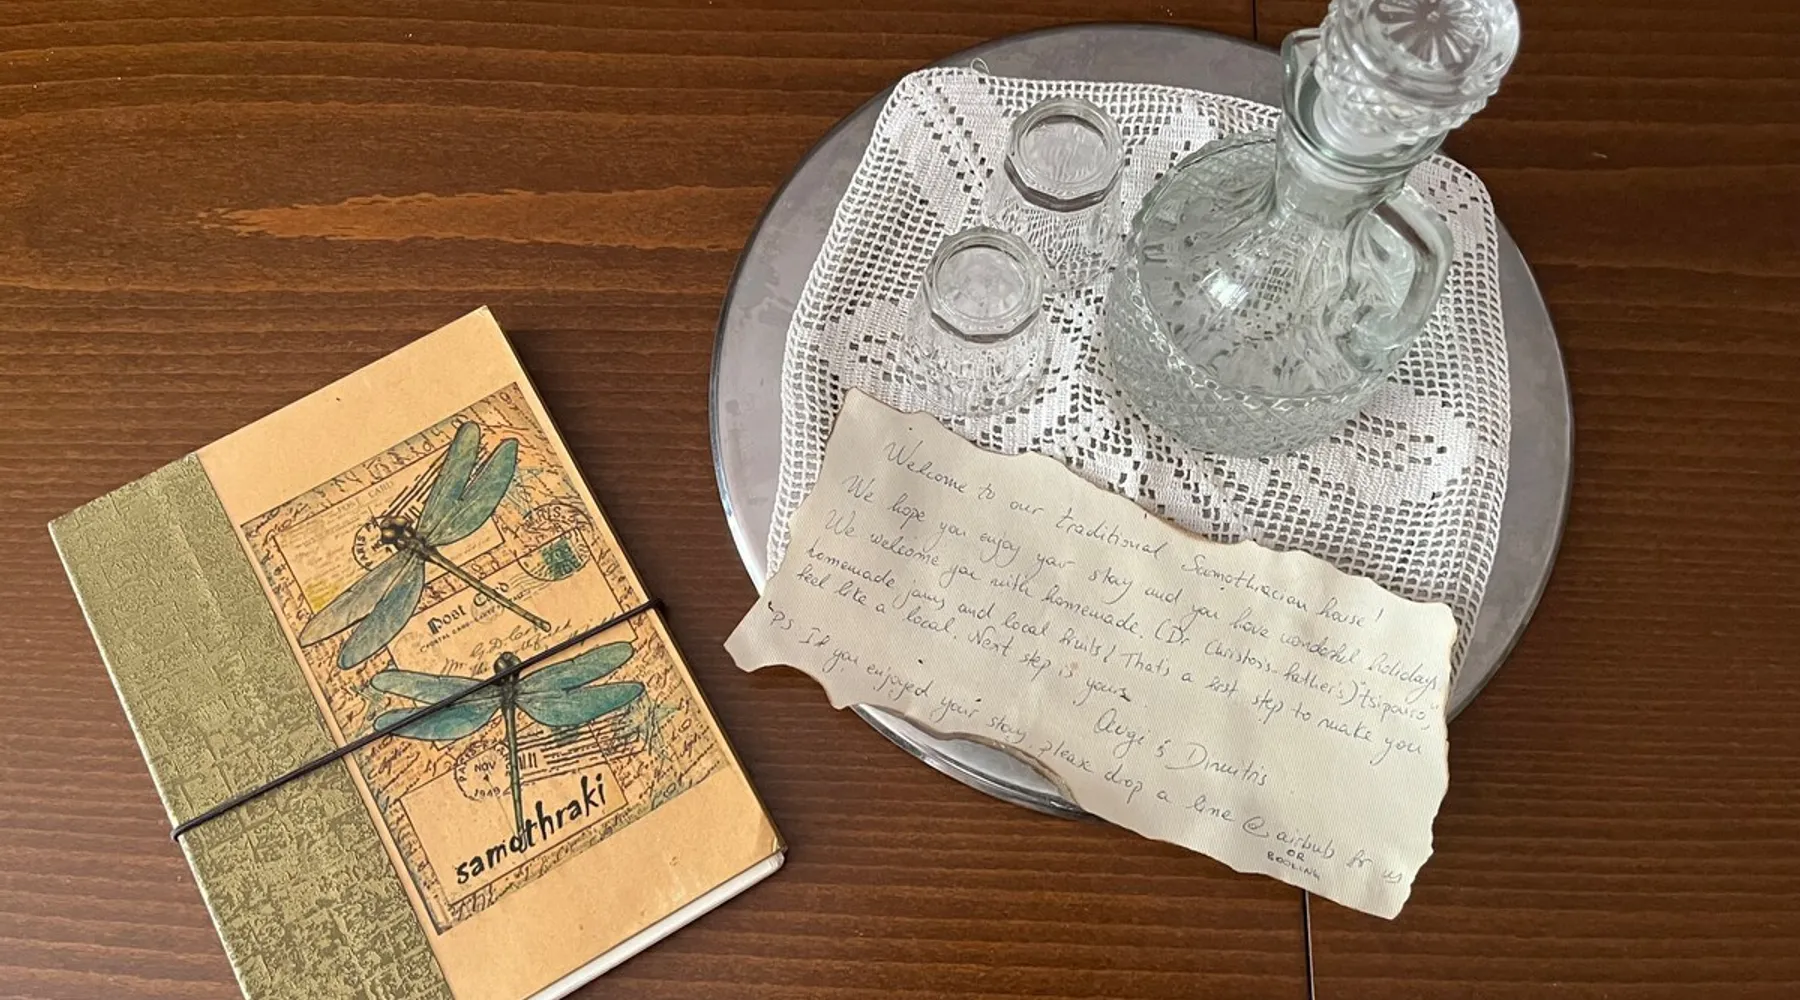 POST CARD
PARIS
Post Card
by D.
Mr. the
PARIS
NOV
4
1949
samothraki
Welcome to our traditional Samothracian house!
We hope you enjoy your stay and you have wonderful holidays.
We welcome you with homemade (Dr Christos's-father's) "tsipouro,"
homemade jams and local fruits! That's a first step to make you
feel like a local. Next step is yours
Avgi & Dimitris
Ps. If you enjoyed your stay please drop a line @ airbnb for us
OR
BOOKING